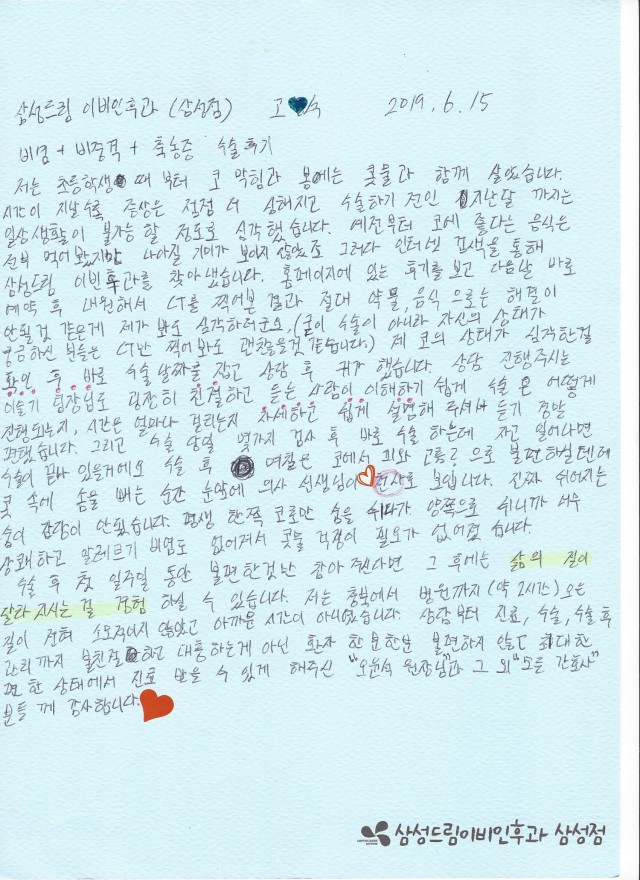 삼성드림 이비인후과 (삼성점) 고 수 2019. 6. 15
비염 + 비중격 + 축농증 수술후기
저는 초등학생 때 부터 코 막힘과 봄에는 콧물과 함께 살았습니다.
시간이 지날수록 증상은 점점 더 심해지고 수술하기 전인 지난달 까지는
일상생활이 불가능 할 정도로 심각했습니다. 예전부터 코에 좋다는 음식은
전부 먹어봤지만 나아질 기미가 보이지 않았죠 그러다 인터넷 검색을 통해
삼성드림 이빈후과를 찾아냈습니다. 홈페이지에 있는 후기를 보고 다음날 바로
예약 후 내원해서 CT를 찍어본 결과 절대 약물, 음식 으로는 해결이
안될것 같은게 제가 봐도 심각하더군요. (굳이 수술이 아니라 자신의 상태가
궁금하신 분들은 CT만 찍어봐도 괜찮을것 같습니다.) 제 코의 상태가 심각한걸
확인 후 바로 수술날짜를 잡고 상담 후 귀가 했습니다. 상담 진행주시는
이슬기 팀장님도 굉장히 친절하고 듣는 사람이 이해하기 쉽게 수술은 어떻게
진행되는지, 시간은 얼마나 걸리는지 자세하고 쉽게 설명해 주셔서 듣기 정말
편했습니다. 그리고 수술 당일 몇가지 검사 후 바로 수술 하는데 자고 일어나면
수술이 끝나 있을거에요 수술 후 며칠은 코에서 피와 고름 으로 불편하실텐데
콧 속에 솜을 빼는 순간 눈앞에 의사 선생님이 천사로 보입니다. 진짜 쉬어지는
숨이 감당이 안됬습니다. 평생 한쪽 코로만 숨을 쉬다가 양쪽으로 쉬니까 너무
상쾌하고 알레르기 비염도 없어져서 콧물 걱정이 필요가 없어졌습니다.
수술 후 첫 일주일 동안 불편한것만 참아 주신다면 그 후에는 삶의 질이
달라지시는 걸 경험 하실 수 있습니다. 저는 충북에서 병원까지 (약 2시간) 오는
길이 전혀 소모적이지 않았고 아까운 시간이 아니였습니다. 상담부터 진료, 수술, 수술 후
관리까지 불친절하고 대충하는게 아닌 환자 한분한분 불편하지 않도록 최대한
편한 상태에서 진료 받을 수 있게 해주신 "오윤석 원장님"과 그 외 "모든 간호사"
분들 께 감사합니다.
삼성드림이비인후과 삼성점